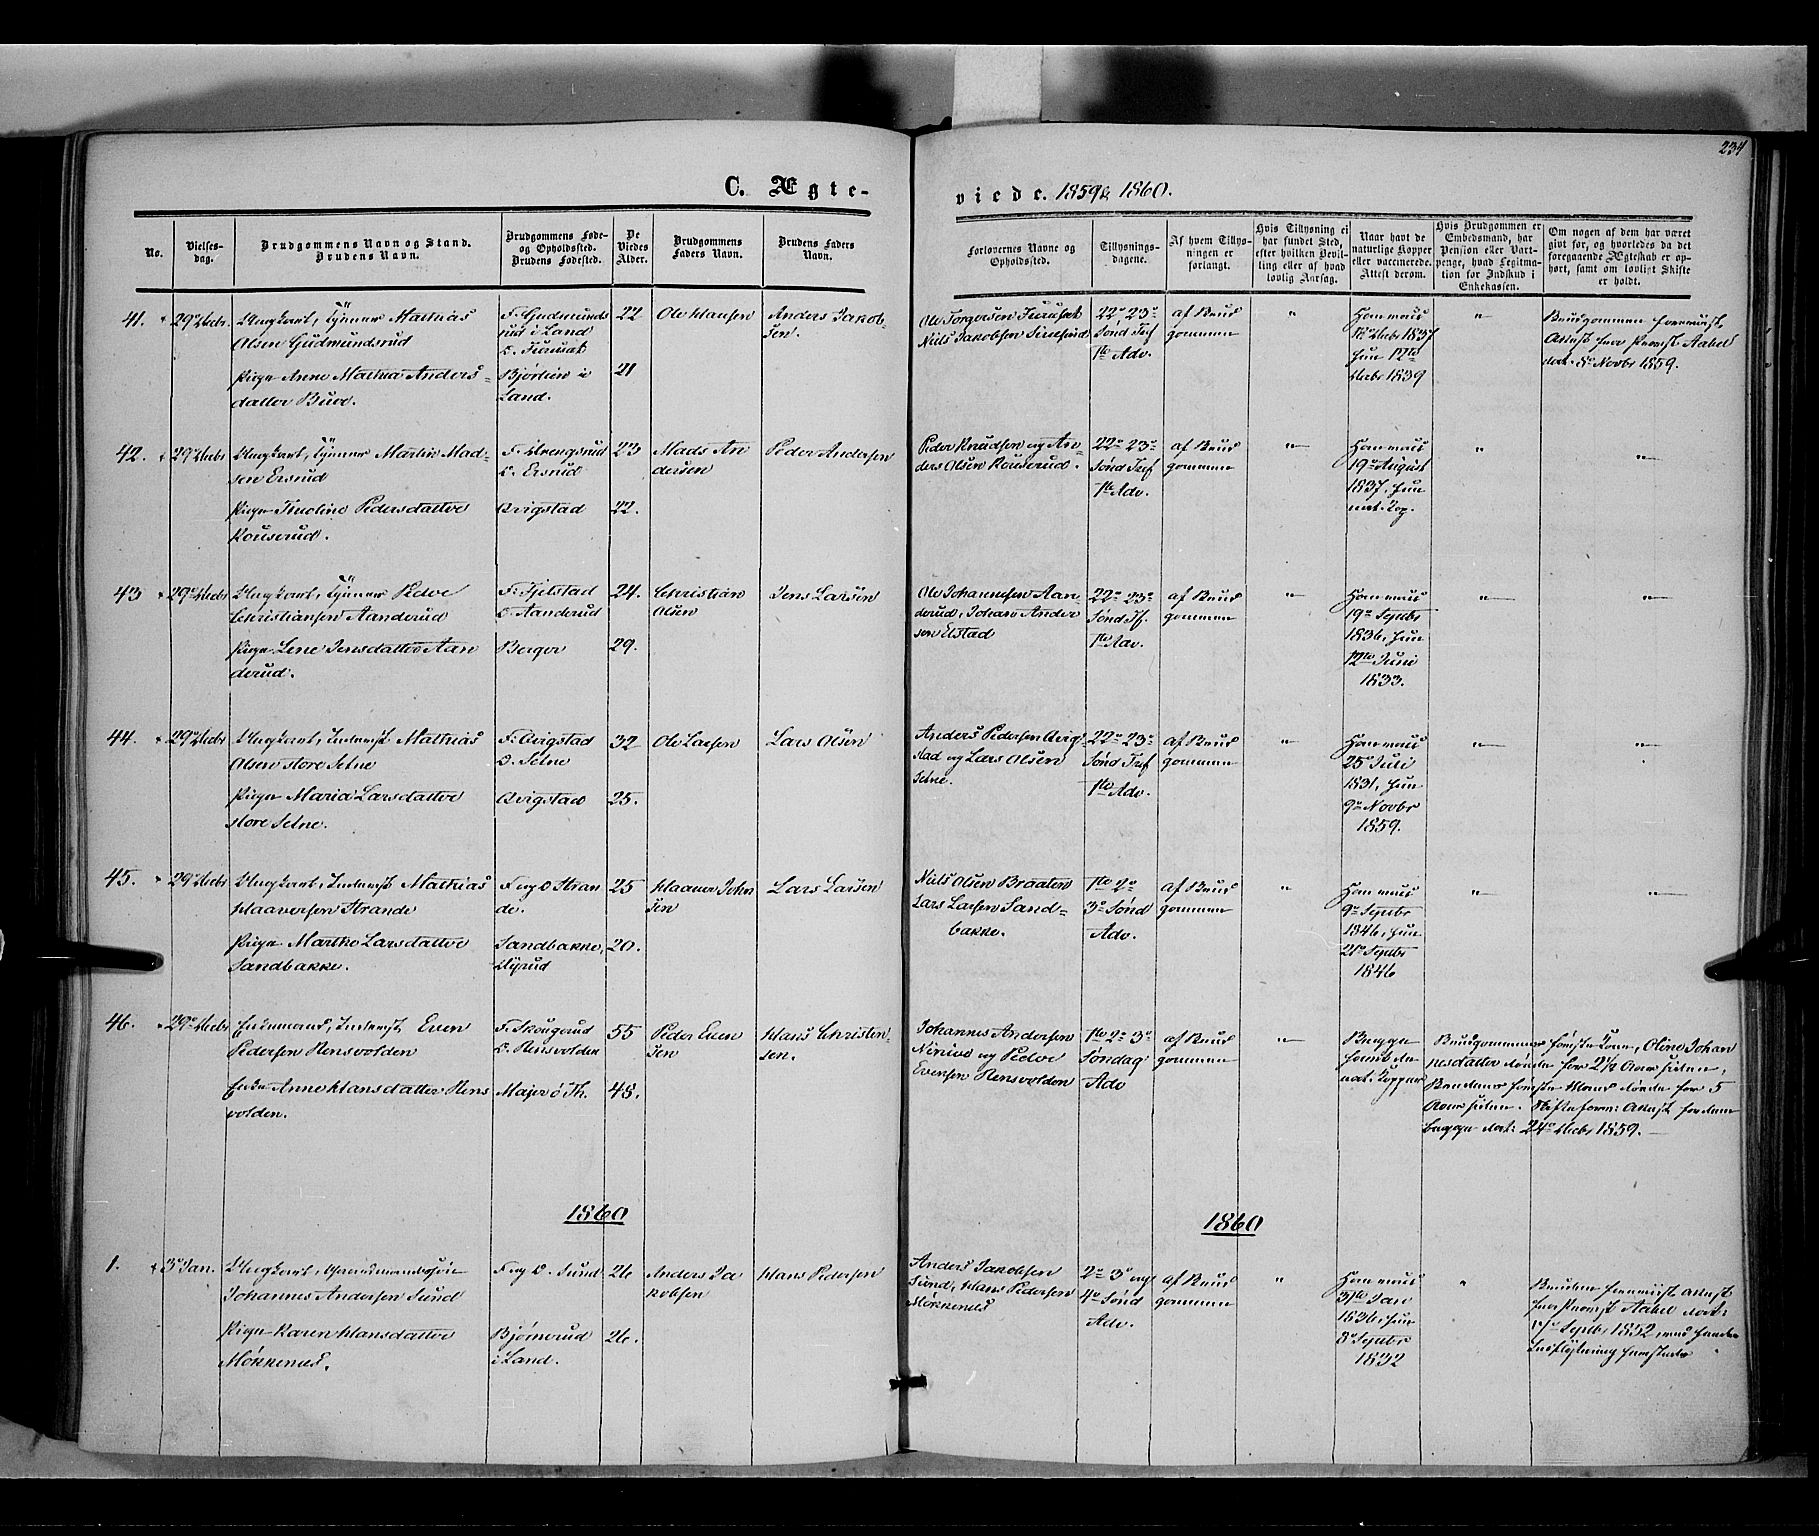 234
C. Ægte-
viede. 1859 & 1860.
No.
Vielses-
dag.
Brudgommens Navn og Stand.
Brudens Navn.
Brudgommens Føde-
og Opholdssted.
Brudens Fødested.
De
Viedes
Alder.
Brudgommens
Faders Navn.
Brudens Faders
Navn.
Forlovernes Navne og
Opholdssted.
Tillysnings-
dagene.
Af hvem Tillys-
ningen er
forlangt.
Hvis Tillysning ei
har fundet Sted,
efter hvilken Bevil-
ling eller af hvad
lovlig Aarsag.
Naar havt de
naturlige Kopper
eller vaccinerede.
Attest derom.
Hvis Brudgommen er
Embedsmand, har
Pension eller Vart-
penge, hvad Legitima-
tion for Indskud i
Enkekassen.
Om nogen af dem har været
givt før, og hvorledes da det
foregaaende Ægteskab er op-
hørt, samt om lovligt Skifte
er holdt.
41.
29° Decbr.
Ungkarl, Tjener Mathias
Olsen Gudmundsrud
Pige Anne Mathea Anders-
datter Bure.
F. Gudmunds
rud i Land
O. Furusæt
Bjørlien i
Land.
22
21
Ole Hansen
Anders Jakob-
sen.
Ole Torgersen Furusæt
Niels Jakobsen
22° 23°
Sønd Tref
1te Adv.
af Brud
gommen
Ham vacc
Decbr 1837
hun 17de
Decbr 1839
"
Brudgommen fremviist
Attest fra Provst Aabel
dat. 8° Novbr 1859.
42.
29° Decbr
Ungkarl, Tjener Martin Mad-
sen Ersrud
Pige Tholine Pedersdatter
Kouserud.
O. Ersrud
Avigstad
23
22.
Mads An
dersen
Peder Andersen
Peder Knudsen og An
ders Olsen Kouserud.
22° 23°
Sønd Tref
1te Adv.
af Brud
gommen
"
Ham vacc
19° August
1837, hun
nat. Kop.
"
"
43
29° Decbr
Ungkarl, Tjener Peder
Christiansen Aanderud
Pige Lene Jensdatter Aan
derud.
F. Fjelstad
O. Aanderud
Berger
24.
29.
Christian
Olsen
Jens Larsen
Ole Johannesen Aan
derud, Johan Ander
sen Elstad
22° 23°
Sønd Tf.
1te Adv.
af Brud
gommen
"
Ham vacc
19° Septbr
1836, hun
12te Juni
1833.
"
"
44.
29° Decbr
Ungkarl, Inderst Mathias
Olsen store Selne
Pige Maria Larsdatter
store Selne.
F. Avigstad
O. Selne
Avigstad
32
25.
Ole Larsen
Lars Olsen
Anders Pedersen Avig-
stad og Lars Olsen
Selne.
22° 23°
Sønd Tref
1te Adv.
af Brud
gommen
"
Ham vacc
25° Juli
1831, hun
9° Novbr
1859.
"
"
45.
29° Decbr
Ungkarl, Inderst Mathias
Haaversen Strande
Pige Marthe Larsdatter
Sandbakke.
F. og O Stran
de.
Sandbakke,
25
20.
Haaver John
sen
Lars Larsen
Niels Olsen Braaten
Lars Larsen Sand=
bakke.
1te 2°
3° Sønd
Adv.
af Brud
gommen
"
Ham vacc
9° Septbr
1846, hun
21° Septbr
1846
"
"
46.
29° Decbr
Enkemand, Inderst Even
Pedersen Rensvolden
Enke Anne Hansdatter Rens
volden.
F. Skougerud
O. Rensvolden
Majer ø Th.
55
48.
Peder Even
sen
Hans Christen-
sen.
Johannes Andersen
og Peder
Evensen Rensvolden
1te 2° 3°
Søndag
Adv
af Brud
gommen
"
Begge
nat. Kopper
Brudgommens første Kone, Oline Johan
nesdatter døde for 2½ Aar siden,
Brudens første Mand døde for 5
Aar siden. Skifteforv: Attest for dem
begge dat: 24° Decbr 1859.
1860
1860
1.
3° Jan.
Ungkarl, Gaardmandssøn
Johannes Andersen Sund
Pige Karen Hansdatter
Mokkenes.
F. og O. Sund
Bjørnerud
i Land.
26
26.
Anders Ja
kobsen
Hans Pedersen
Anders Jakobsen
Sund, Hans Pedersen
Mokkenes
2° 3° og
4° Sønd
Adv.
af Brud
gommen
"
Ham vacc
31te Jan
1836, hun
8° Septbr
1832
"
Bruden fremviist Attest
fra Provst Aabel dat:
Septbr 1852, med hendes
Indflytning fremsendes